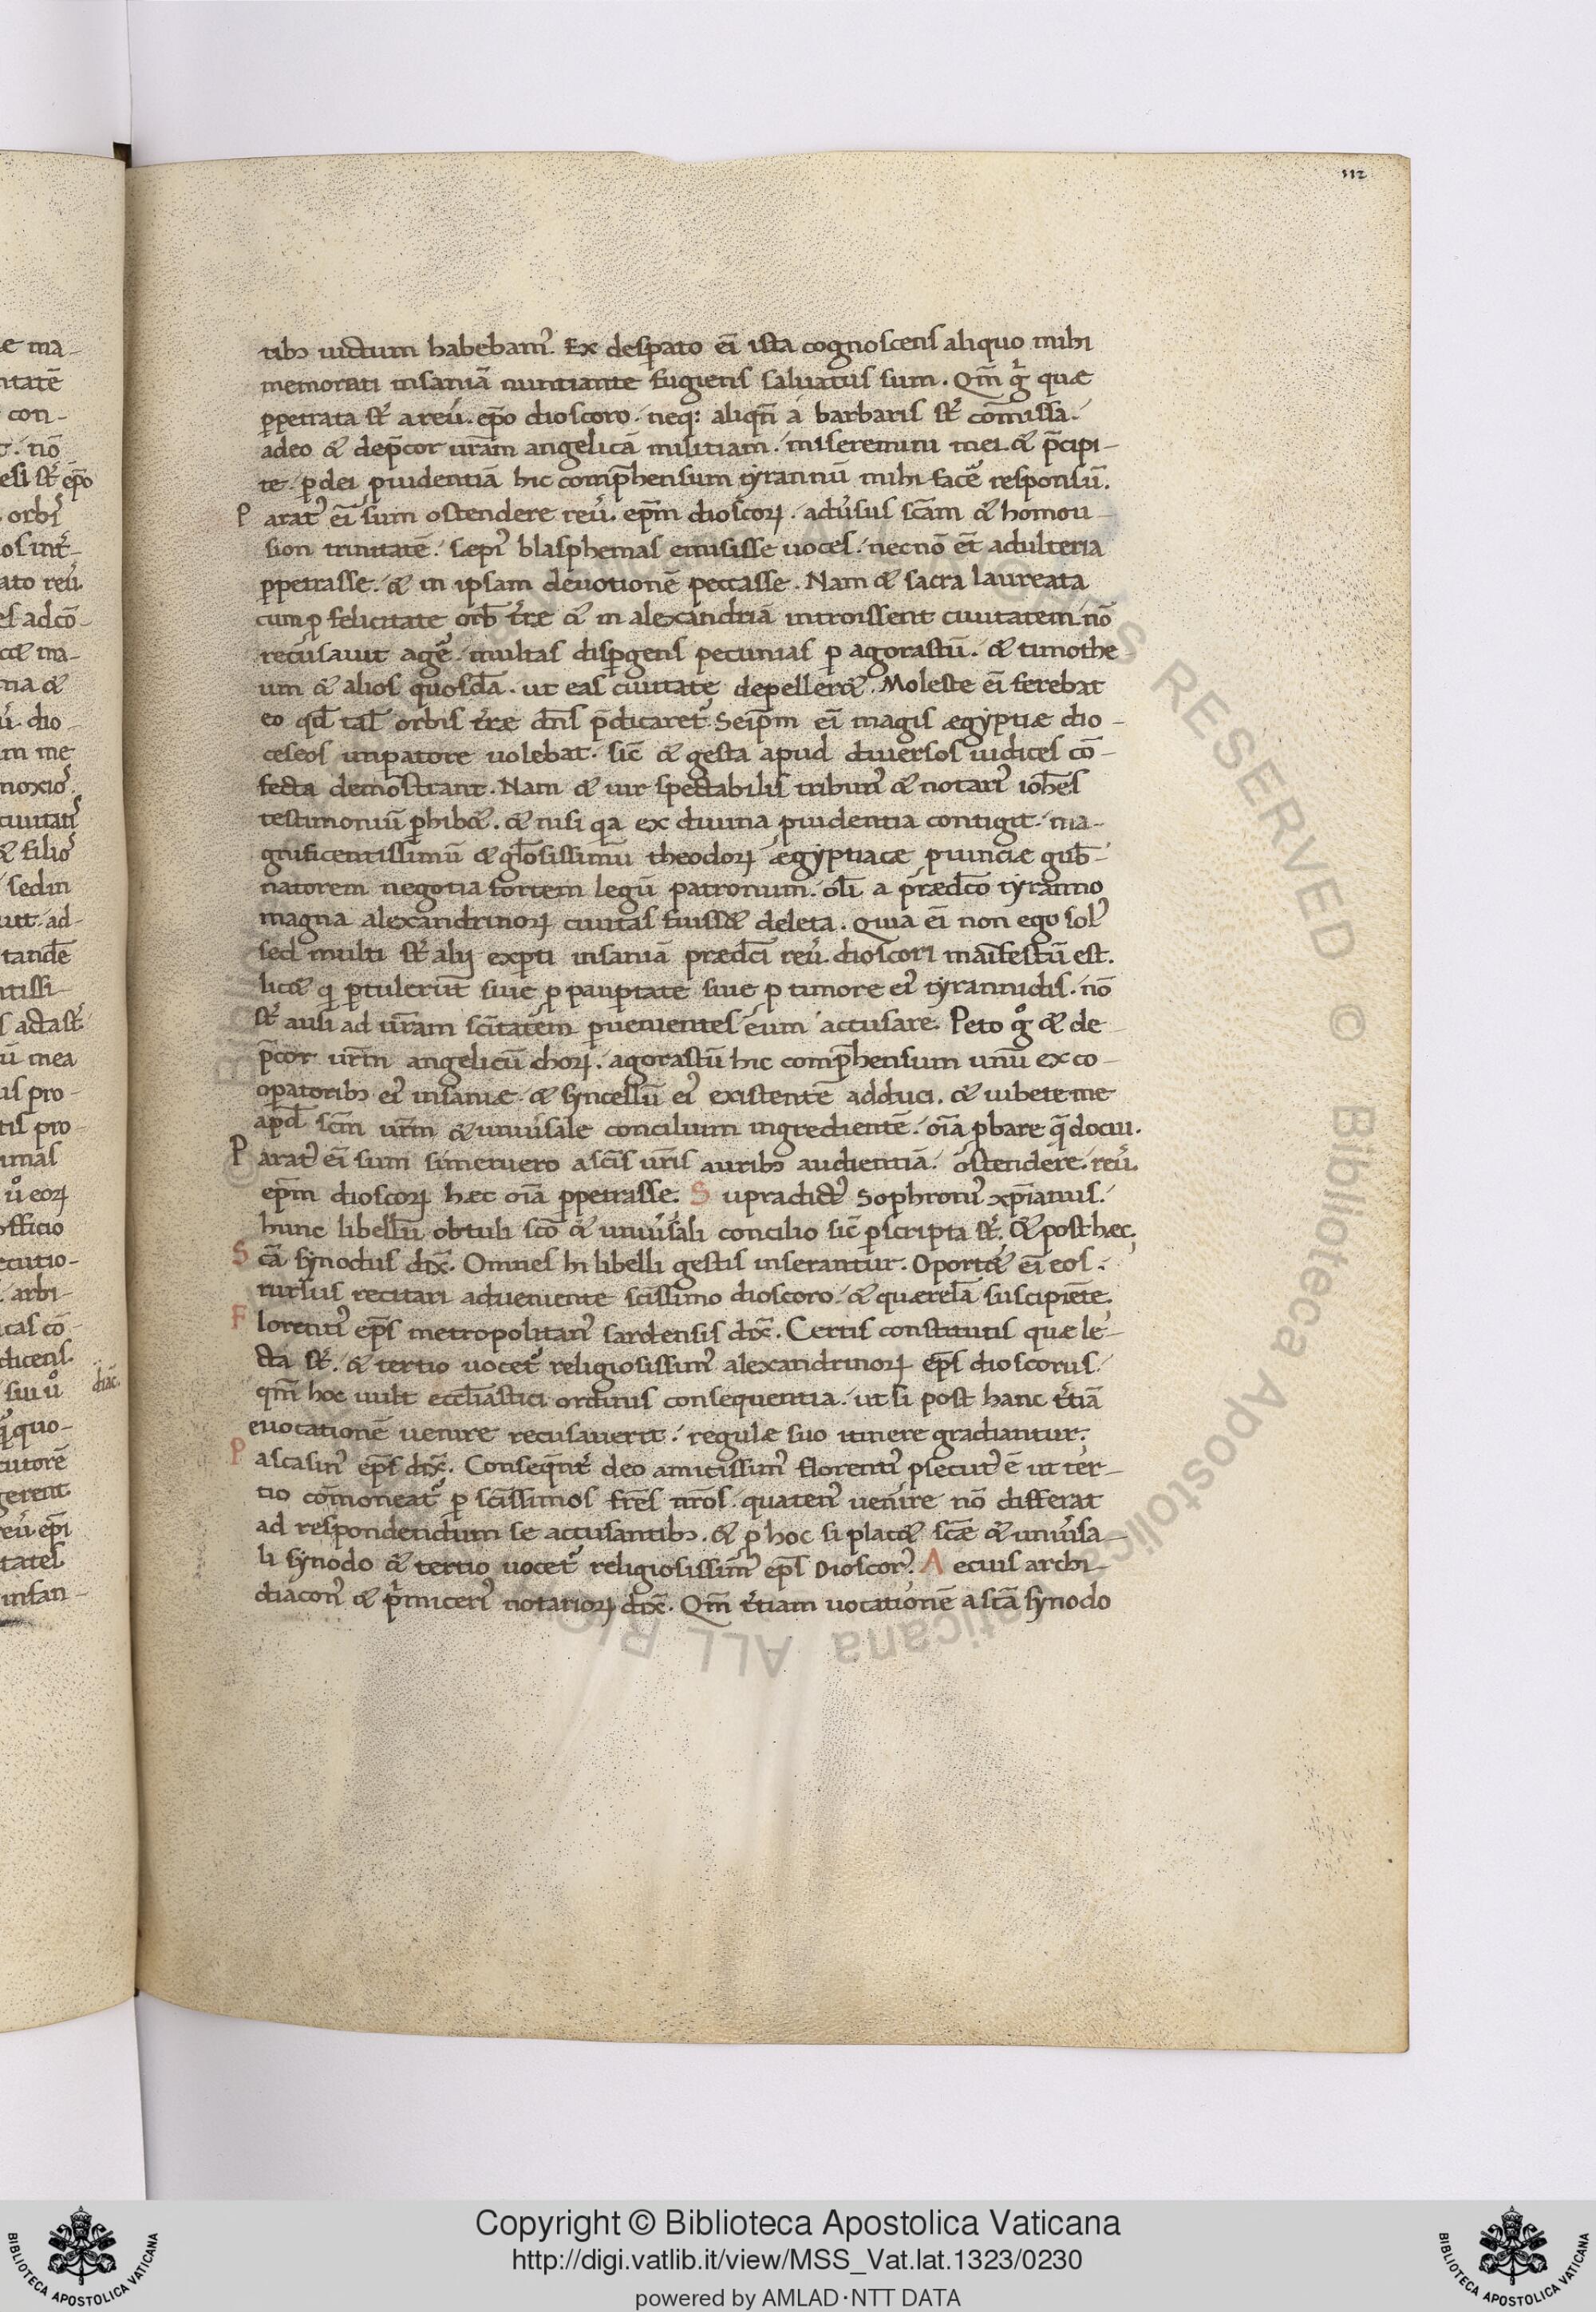 112
tibꝫ uictum habebam᷒. Ex desꝑato ei̅ ista cognoscens aliquo mihi
memorati insania̅ nuntiante fugiens saluatus sum. Qm̅ gͥ quæ
ꝑpetrata st᷒ a reu᷒. epo̅ dioscoro. neq; aliqn̅ a barbaris st᷒ co̅missa.
adeo & dep̅cor ura̅m angelica̅ militiam. miseremini mei & p̅cipi-
te. ꝑ dei ꝓuidentia̅ hic comp̅hensum tyrannu̅ mihi face᷒ responsu̅.
P arat᷒ ei̅ sum ostendere reu᷒. epm̅ dioscoꝝ. adu᷒sus sca̅m & homou-
sion trinitate̅. sæpi᷒ blasphemas emisisse uoces. necno̅ et̅ adulteria
ꝑpetrasse. & in ipsam deuotione̅ peccasse. Nam & sacra laureata
cum ꝓ felicitate orb̅ t᷒ræ & in alexandria̅ introissent ciuitatem no̅
recusauit age᷒. multas disꝑgens pecunias ꝑ agorastu̅. & timothe
um & alios quosda̅. ut eas ciuitate depeller&. Moleste ei̅ ferebat
eo qd̅ tal̅ orbis t᷒ræ dn̅s p̅dicaret᷒. Seipm̅ ei̅ magis ægyptiæ dio-
ceseos imꝑatore uolebat. sic̅ & gesta apud diuersos iudices co̅-
fecta demo̅strant. Nam & uir spectabilis tribun᷒ & notari᷒ ioh̅es
testimoniu̅ ꝑhib&. & nisi qa ex diuina ꝓuidentia contigit. ma-
gnificentissimu̅ & gl̅osissimu̅ theodoꝝ ægyptiacæ ꝓuinciæ gub̅-
natorem negotia fortem legu̅ patronum. oli̅ a prædc̅o tyranno
magna alexandrinoꝝ ciuitas fuiss& deleta. Quia ei̅ non ego sol᷒
sed multi st᷒ alij exꝑti insania̅ prædc̅i reu᷒. dioscori manifestu̅ est.
lic& qͥ ꝑtuleru̅t siue ꝓ pauꝑtate siue ꝓ timore ei᷒ tyrannidis. no̅
st᷒ ausi ad ura̅m sci̅tatem ꝑuenientes eum accusare. Peto gͦ & de-
p̅cor urm̅ angelicu̅ choꝝ. agorastu̅ hic comp̅hensum unu̅ ex co-
oꝑatoribꝫ ei᷒ insaniæ & syncellu̅ ei᷒ existente̅ adduci. & iubete me
apd̅ scm̅ urm̅ & uniu᷒sale concilium ingrediente̅. oi̅a ꝓbare q̅ docui.
P arat᷒ ei̅ sum si meruero a sci̅s uri̅s auribꝫ audientia̅. ostendere. reu᷒.
epm̅ dioscoꝝ hæc oi̅a ꝑpetrasse. S upradict᷒ Sophroni᷒ xp̅ianus.
hunc libellu̅ obtuli sco̅ & uniu᷒sali concilio sic̅ ꝑscripta st᷒. & post hæc.
S ca̅ synodus dix̅. Omnes hi libelli gestis inserantur. Oport& ei̅ eos.
rursus recitari adueniente sci̅ssimo dioscoro. & querela̅ suscipie̅te.
F lorenti᷒ ep̅s metropolitan᷒ sardensis dix̅. Certis constitutis quæ le-
cta st᷒. & tertio uocet᷒ religiosissim᷒ alexandrinoꝝ ep̅s dioscorus.
qm̅ hoc uult eccl̅iastici ordinis consequentia. ut si post hanc t᷒tia̅
euocatione̅ uenire recusauerit. regulæ suo itinere gradiantur.
P ascasin᷒ ep̅s dix̅. Conseq̅nt᷒ deo amicissim᷒ florenti᷒ ꝓsecut᷒ e̅ ut ter-
tio co̅moneat᷒ ꝑ sci̅ssimos fr̅es nr̅os. quaten᷒ uenire no̅ differat
ad respondendum se accusantibꝫ. & ꝑ hoc si plac& scæ̅ & uniu᷒sa-
li synodo & tertio uocet᷒ religiosissim᷒ ep̅s Dioscor᷒. A ecius archi-
diacon᷒ & pͥmiceri᷒ notarioꝝ dix̅. Qm̅ t᷒tiam uocatione̅ a sca̅ synodo
Copyright © Biblioteca Apostolica Vaticana
http://digi.vatlib.it/view/MSS_Vat.lat.1323/0230
powered by AMLAD·NTT DATA